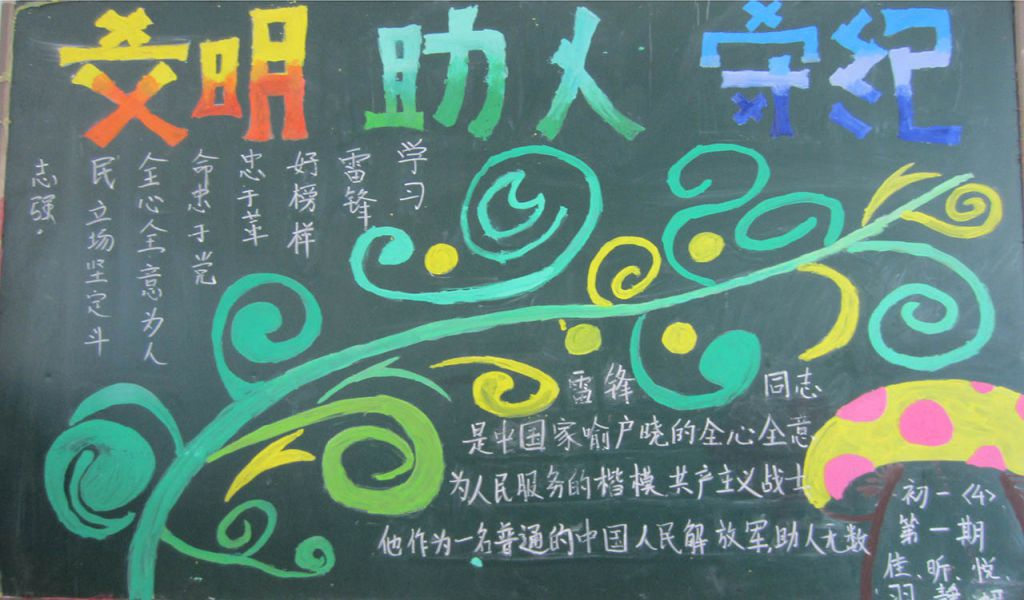 文明 助人 守纪
学习
雷锋
好榜样
忠于革
命忠于党
全心全意为人
民立场坚定斗
志强.
雷锋 同志
是中国家喻户晓的全心全意
为人民服务的楷模 共产主义战士
他作为一名普通的中国人民解放军,助人无数
初一<4>
第一期
佳、昕、悦、
羽 静